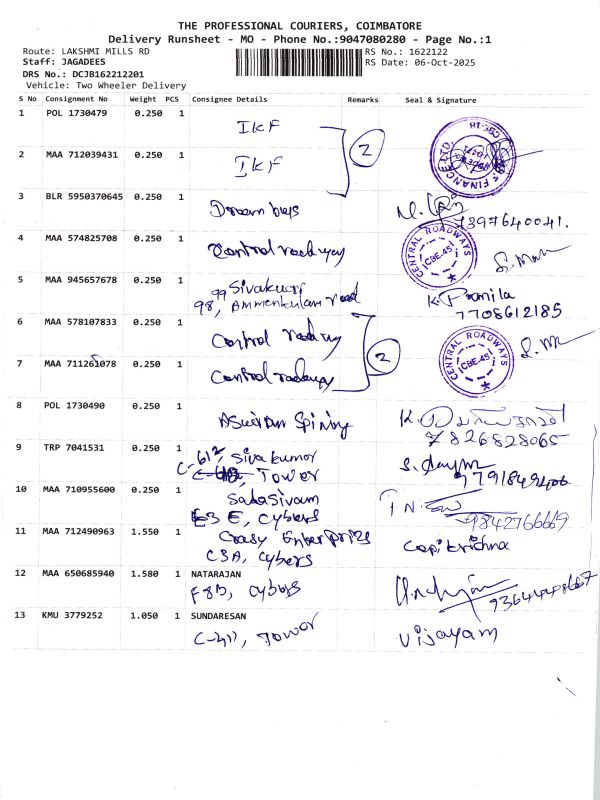 THE PROFESSIONAL COURIERS, COIMBATORE
Delivery Runsheet - MO - Phone No.:9047080280 - Page No.:1
Route: LAKSHMI MILLS RD RS No.: 1622122
Staff: JAGADEES RS Date: 06-Oct-2025
DRS No.: DCJB162212201
Vehicle: Two Wheeler Delivery
S No Consignment No Weight PCS Consignee Details Remarks Seal & Signature
1 POL 1730479 0.250 1 IKF
2
2 MAA 712039431 0.250 1 IKF
FINANCE LTD.
3 BLR 5950370645 0.250 1 Dream buys
7397640041.
4 MAA 574825708 0.250 1 Central roadway
CENTRAL ROADWAYS CBE-45
5 MAA 945657678 0.250 1 99 Sivakurj K. Pramila
98, Ammankulam road 7708612185
6 MAA 578107833 0.250 1 Central roadway
2
CENTRAL ROADWAYS CBE-45
7 MAA 711261078 0.250 1 Central roadway
8 POL 1730490 0.250 1 Spinng
7826828065
9 TRP 7041531 0.250 1 C-612, Sivakumar
Tower
10 MAA 710955600 0.250 1 Sadasivam T.N.
E, Cybers 9842766669
11 MAA 712490963 1.550 1 Crasy Enterprizes Copikrishna
CSA, Cybers
12 MAA 650685940 1.580 1 NATARAJAN
F8D, Cybers 9364448667
13 KMU 3779252 1.050 1 SUNDARESAN
C-411, Tower Vijayam